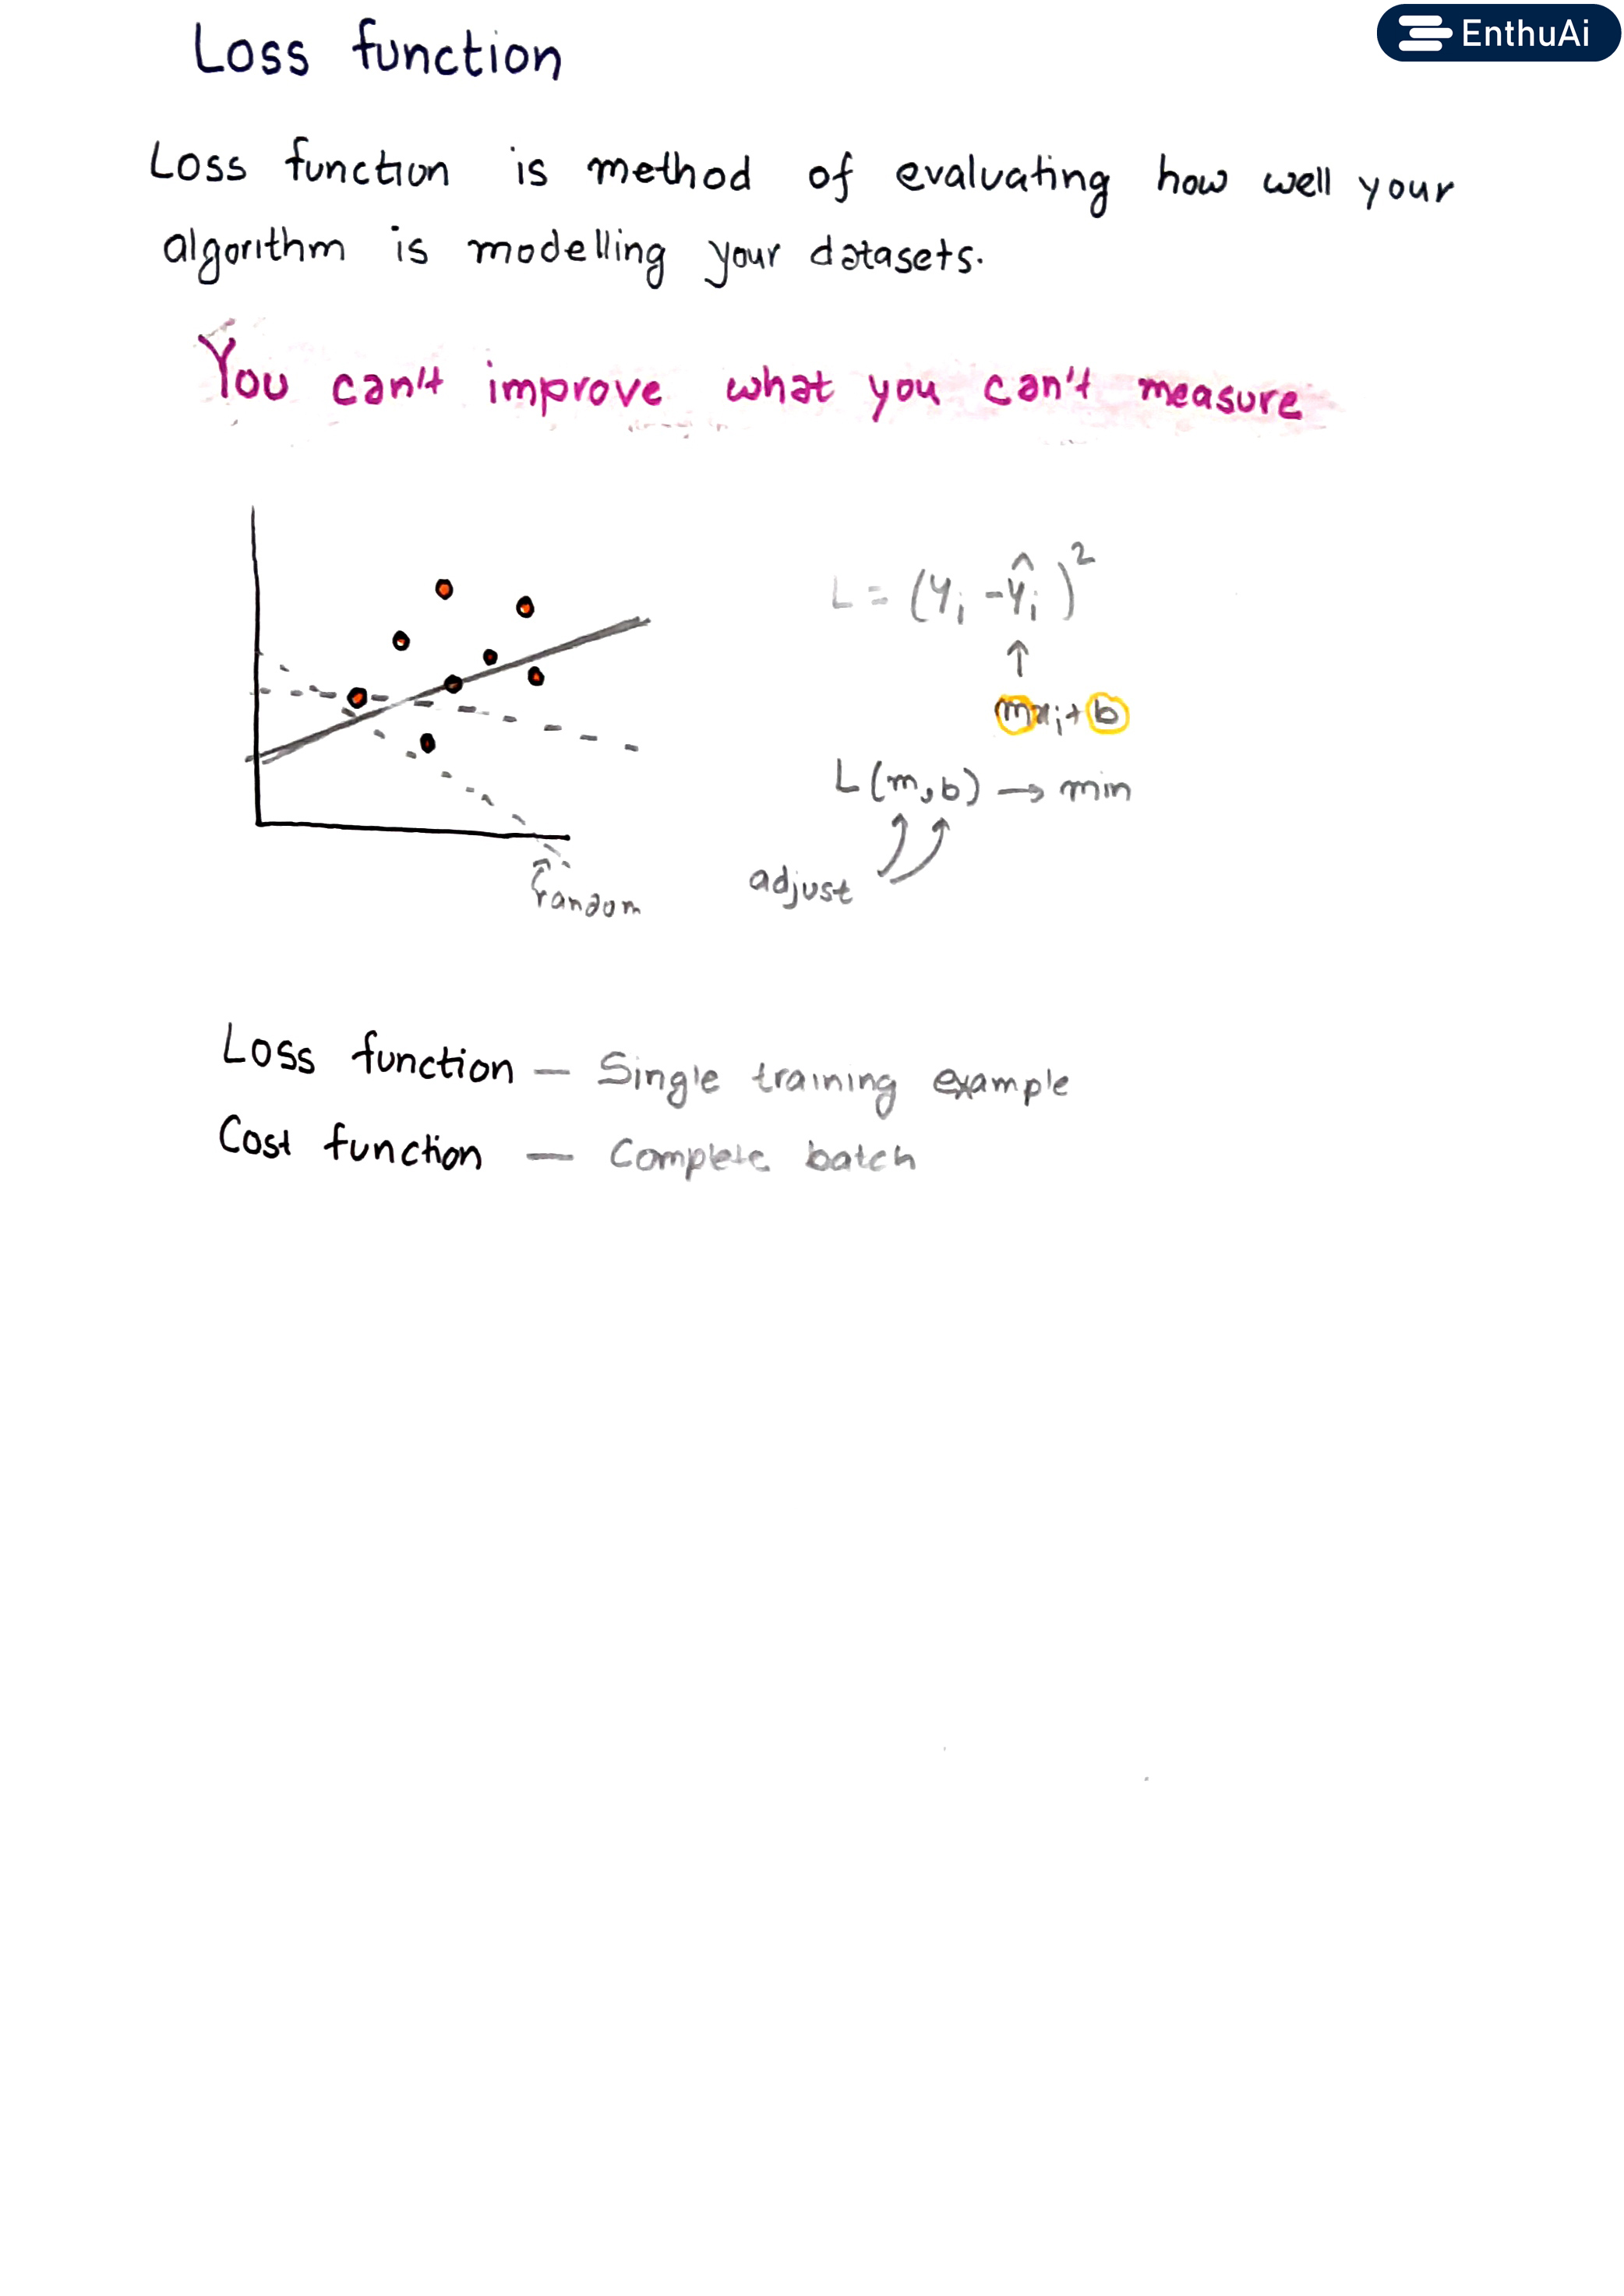 EnthuAi
Loss function
Loss function is method of evaluating how well your
algorithm is modelling your datasets.
You can't improve what you can't measure
L = (yᵢ - ŷᵢ)²
↑
mxᵢ + b
L(m,b) → min
adjust
random
Loss function — Single training example
Cost function — Complete batch